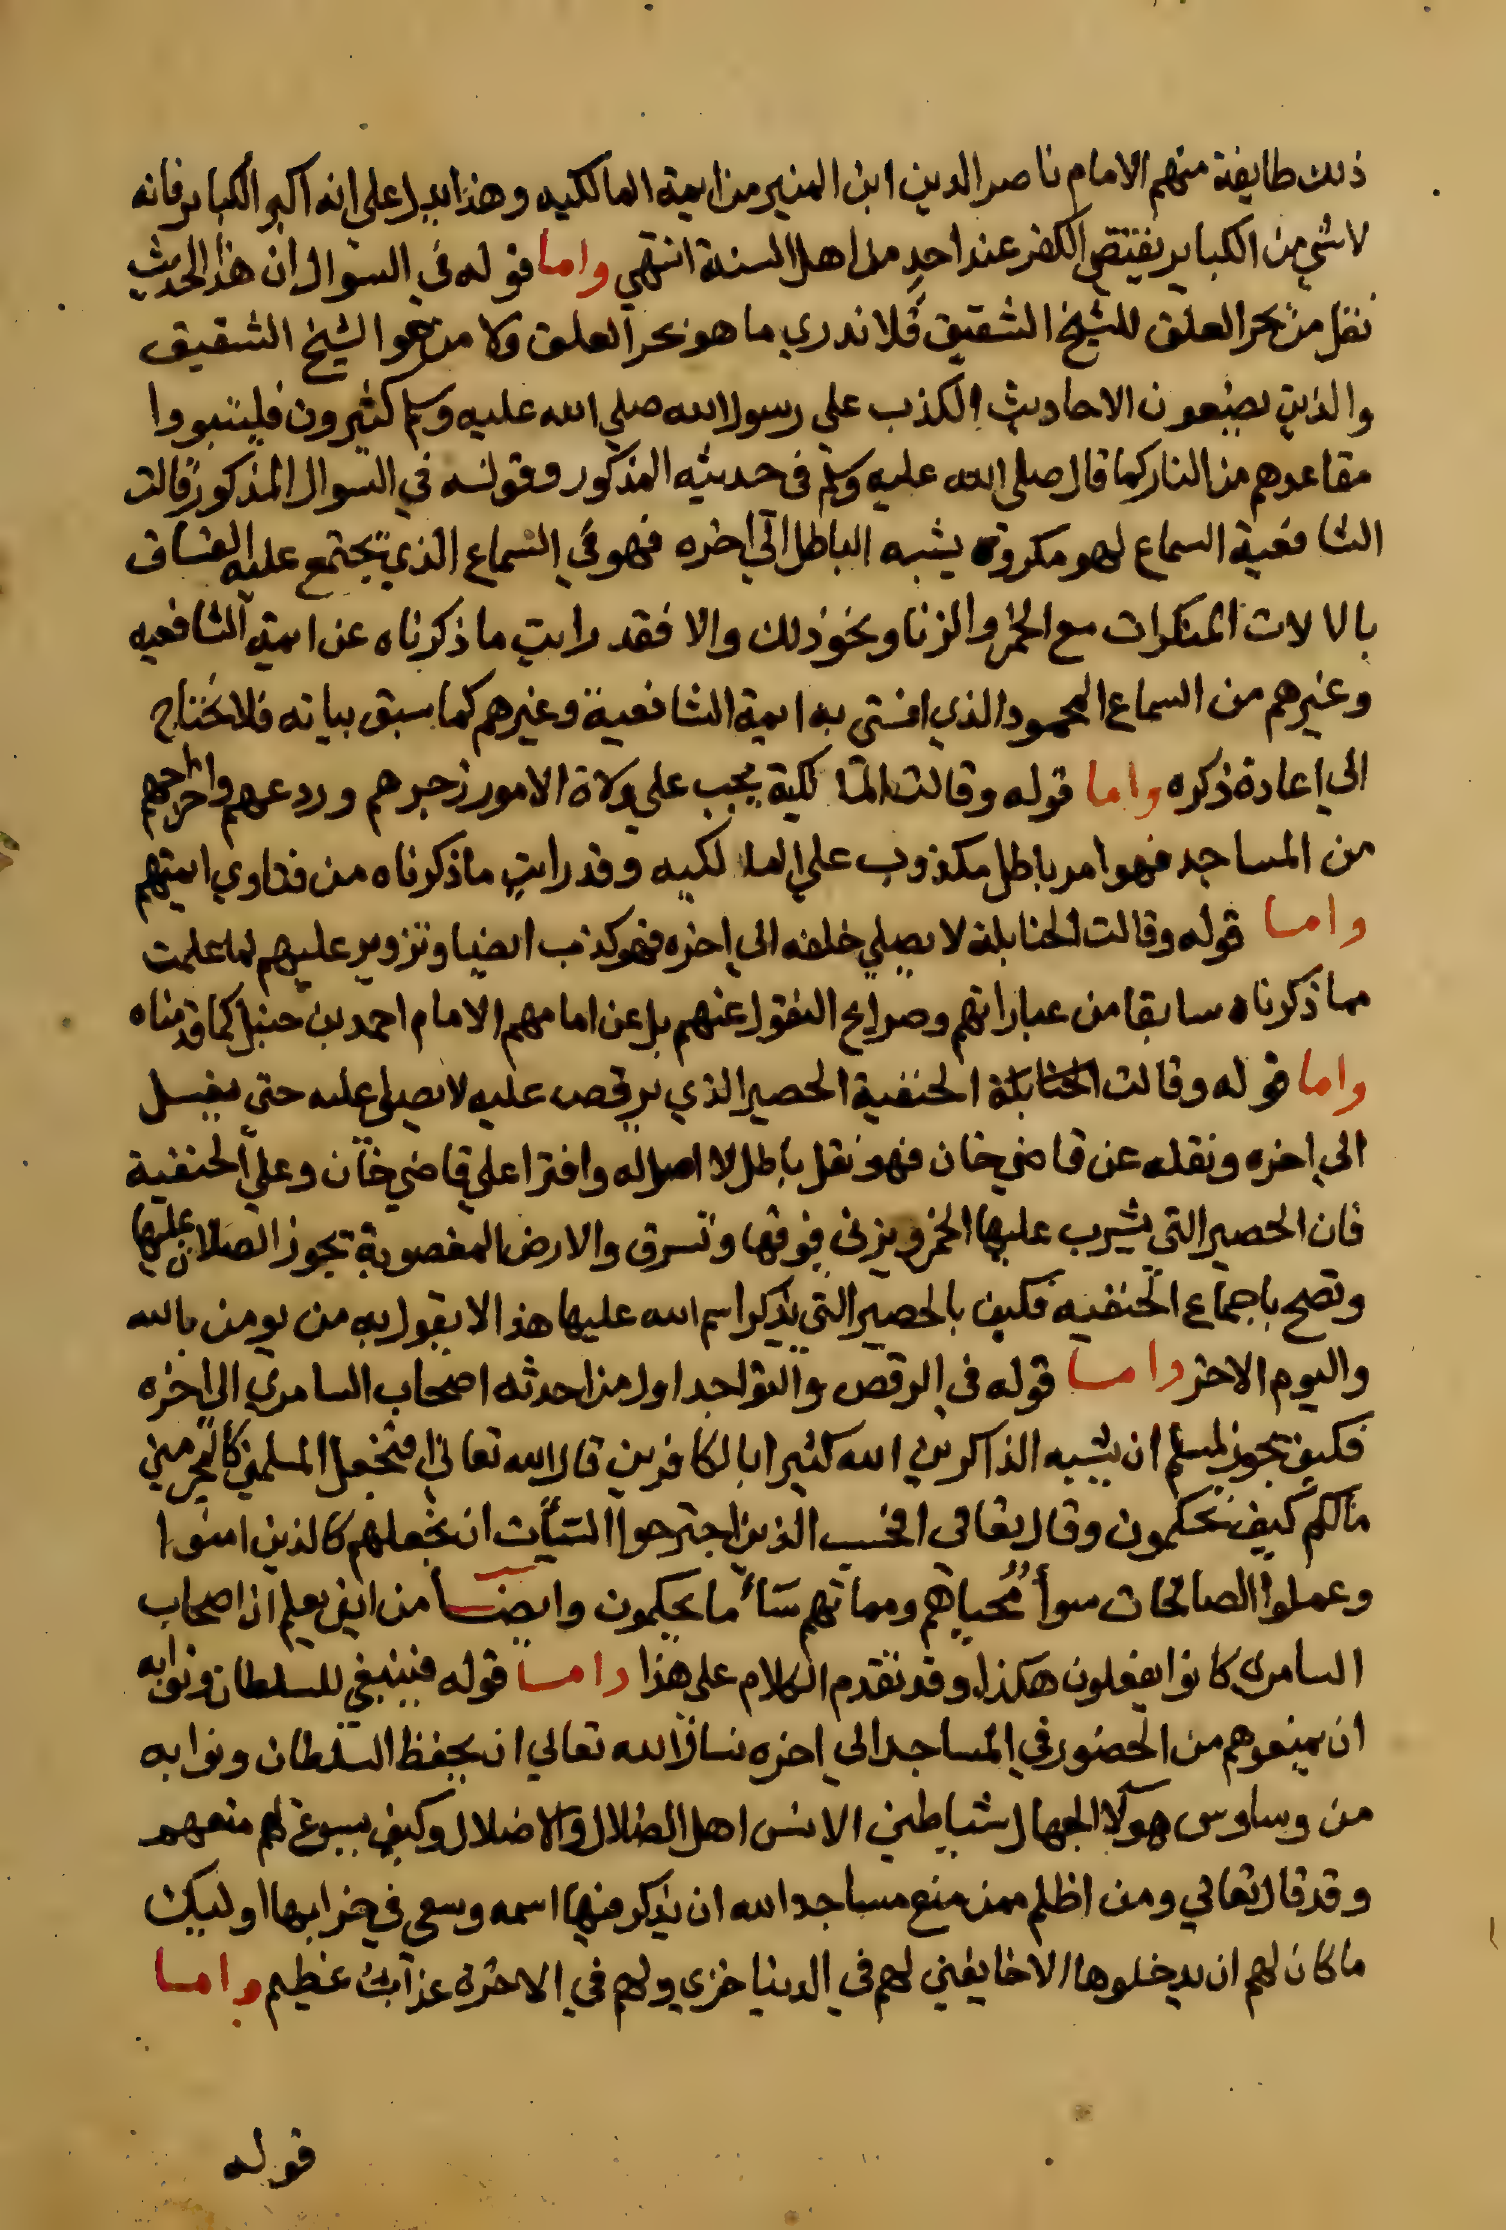 ذلك طايفة منهم الامام ناصر الدين ابن المنير من ايمة المالكيه وهذا يدل على انه اكبر الكباير فانه
لا شي من الكباير يقتضي الكفر عند احد من اهل السنة انتهي واما قوله في السوال ان هذا الحديث
نقل من بحر العلق للشيخ الشقيق فلا ندري ما هو بحر العلق ولا من هو الشيخ الشقيق
والذين يضعون الاحاديث الكذب على رسول الله صلى الله عليه وسلم كثيرون فليتبووا
مقاعدهم من النار كما قال صلى الله عليه وسلم في حديثه المذكور وقوله في السوال المذكور قالت
الشافعية السماع لهو مكروه يشبه الباطل الى اخره فهو في السماع الذي يجتمع عليه الفساق
بالالات المنكرات مع الخمر والزنا ونحو ذلك والا فقد رايت ما ذكرناه عن ايمة الشافعيه
وغيرهم من السماع المحمود الذي افتى به ايمة الشافعية وغيرهم كما سبق بيانه فلا نحتاج
الي اعادة ذكره واما قوله وقالت المالكية يجب علي ولاة الامور زجرهم وردعهم واخراجهم
من المساجد فهو امر باطل مكذوب علي المالكيه وقد رايت ما ذكرناه من فتاوي ايمتهم
واما قوله وقالت الحنابلة لا يصلي خلفه الي اخره فهو كذب ايضا وتزوير عليهم لما علمت
مما ذكرناه سابقا من عباراتهم وصرايح النقول عنهم بل عن امامهم الامام احمد بن حنبل كما قدمناه
واما قوله وقالت الحنابلة الحنفية الحصير الذي يرقص عليه لا يصلى عليه حتى يغسل
الي اخره ونقله عن قاضي خان فهو نقل باطل لا اصل له وافترا علي قاضي خان وعلي الحنفية
فان الحصير التي يشرب عليها الخمر ويزنى فوقها وتسرق والارض المغصوبة تجوز الصلاة عليها
وتصح باجماع الحنفيه فكيف بالحصير التي يذكر اسم الله عليها هذا لا يقول به من يومن بالله
واليوم الاخر واما قوله في الرقص والتواجد اول من احدثه اصحاب السامري الى اخره
فكيف يجوز لمسلم ان يشبه الذاكرين الله كثيرا بالكافرين قال الله تعالى افنجعل المسلمين كالمجرمين
مالكم كيف تحكمون وقال تعالى ام حسب الذين اجترحوا السيأت ان نجعلهم كالذين امنوا
وعملوا الصالحات سوأ محياهم ومماتهم سَاءَ ما يحكمون وايضا من اين يعلم ان اصحاب
السامري كانوا يفعلون هكذا وقد تقدم الكلام على هذا واما قوله فينبغي للسلطان ونوابه
ان يمنعوهم من الحضور في المساجد الى اخره نسال الله تعالي ان يحفظ السلطان ونوابه
من وساوس هولا الجهال شياطين الانس اهل الضلال والاضلال وكيف يسوغ لهم منعهم
وقد قال تعالي ومن اظلم ممن منع مساجد الله ان يذكر فيها اسمه وسعي في خرابها اوليك
ما كان لهم ان يدخلوها الا خايفين لهم في الدنيا خزي ولهم في الاخرة عذاب عظيم واما
قوله